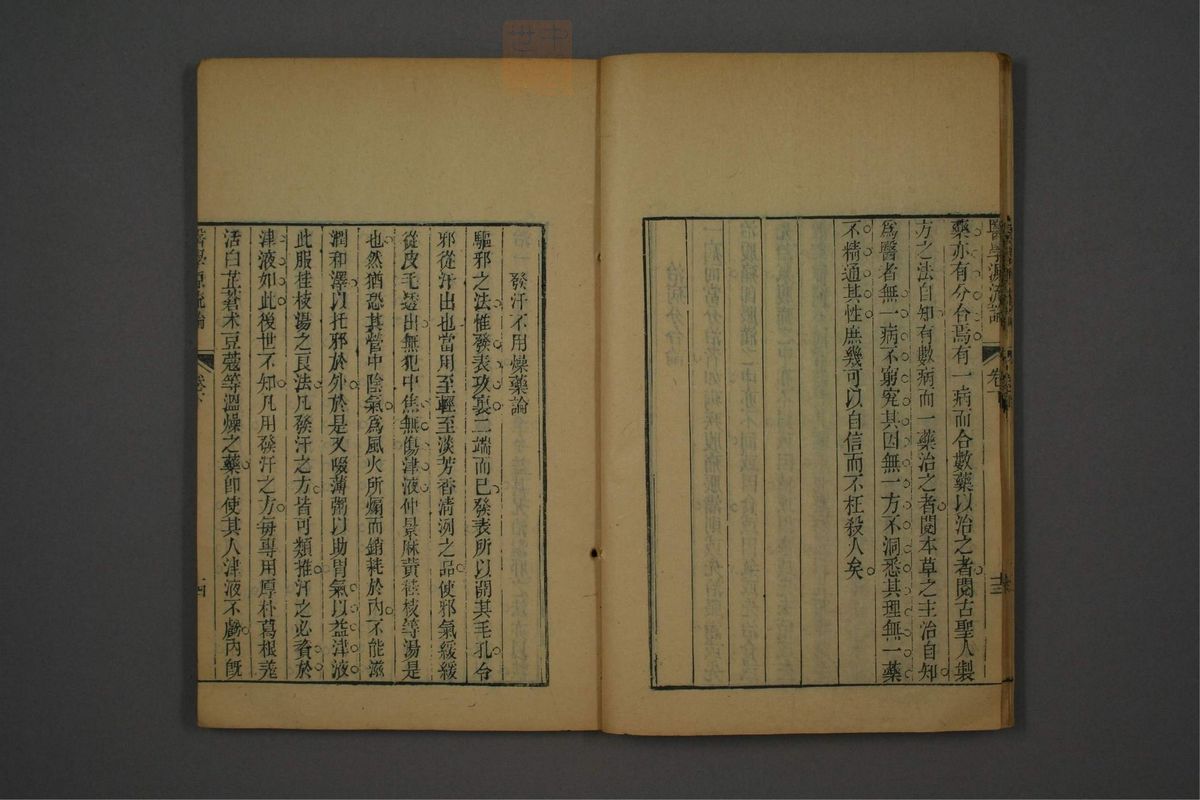 醫學源流論
卷下
十三
藥亦有分合焉有一病而合數藥以治之者閱古聖人製
方之法自知有數病而一藥治之者閱本草之主治自知
爲醫者無一病不窮究其因無一方不洞悉其理無一藥
不精通其性庶幾可以自信而不枉殺人矣
發汗不用燥藥論
驅邪之法惟發表攻裏二端而已發表所以開其毛孔令
邪從汗出也當用至輕至淡芳香清冽之品使邪氣緩緩
從皮毛透出無犯中焦無傷津液仲景麻黃桂枝等湯是
也然猶恐其營中陰氣爲風火所煽而銷耗於內不能滋
潤和澤以托邪於外於是又啜薄粥以助胃氣以益津液
此服桂枝湯之良法凡發汗之方皆可類推汗之必資於
津液如此後世不知凡用發汗之方每專用厚朴葛根羌
活白芷蒼朮豆蔻等溫燥之藥卽使其人津液不虧內旣
醫學源流論
卷下
十四